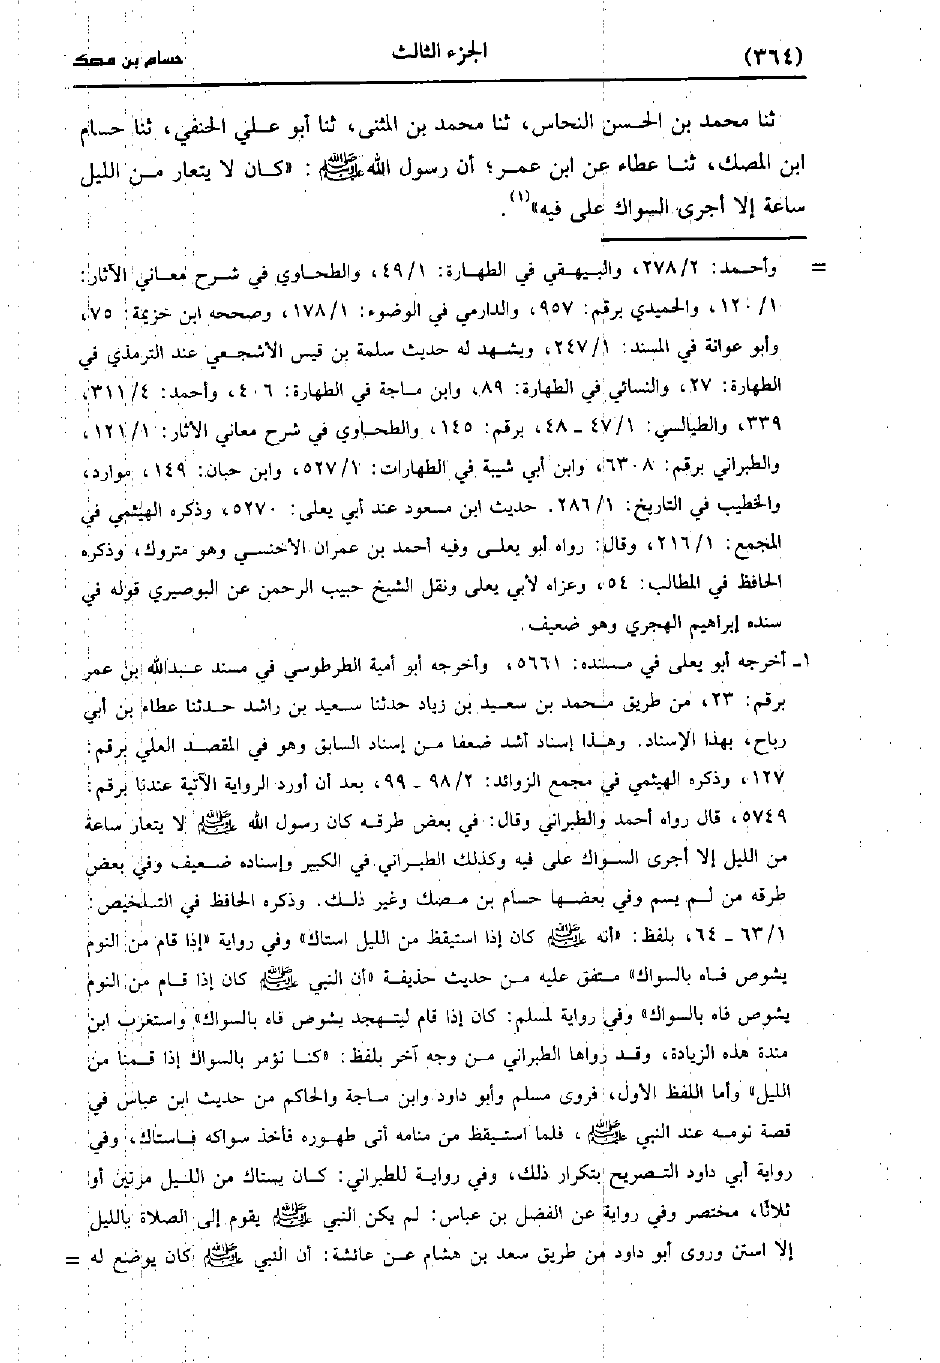 (٣٦٤) الجزء الثالث حسام بن مصك
ثنا محمد بن الحسن النحاس، ثنا محمد بن المثنى، ثنا أبو علي الحنفي، ثنا حسام
ابن المصك، ثنا عطاء عن ابن عمر؛ أن رسول الله ﷺ : «كان لا يتعار من الليل
ساعة إلا أجرى السواك على فيه»(١).
= وأحمد: ٢٧٨/٢، والبيهقي في الطهارة: ٤٩/١، والطحاوي في شرح معاني الآثار:
١٢٠/١، والحميدي برقم: ٩٥٧، والدارمي في الوضوء: ١٧٨/١، وصححه ابن خزيمة: ٧٥،
وأبو عوانة في المسند: ٢٤٧/١، ويشهد له حديث سلمة بن قيس الأشجعي عند الترمذي في
الطهارة: ٢٧، والنسائي في الطهارة: ٨٩، وابن ماجة في الطهارة: ٤٠٦، وأحمد: ٣١١/٤،
٣٣٩، والطيالسي: ٤٧/١ ـ ٤٨، برقم: ١٤٥، والطحاوي في شرح معاني الآثار: ١٢١/١،
والطبراني برقم: ٦٣٠٨، وابن أبي شيبة في الطهارات: ٥٢٧/١، وابن حبان: ١٤٩، موارد،
والخطيب في التاريخ: ٢٨٦/١. حديث ابن مسعود عند أبي يعلى: ٥٢٧٠، وذكره الهيثمي في
المجمع: ٢١٦/١، وقال: رواه أبو يعلى وفيه أحمد بن عمران الأخنسي وهو متروك، وذكره
الحافظ في المطالب: ٥٤، وعزاه لأبي يعلى ونقل الشيخ حبيب الرحمن عن البوصيري قوله في
سنده إبراهيم الهجري وهو ضعيف.
١ـ أخرجه أبو يعلى في مسنده: ٥٦٦١، وأخرجه أبو أمية الطرطوسي في مسند عبدالله بن عمر
برقم: ٢٣، من طريق محمد بن سعيد بن زياد حدثنا سعيد بن راشد حدثنا عطاء بن أبي
رباح، بهذا الإسناد. وهذا إسناد أشد ضعفا من إسناد السابق وهو في المقصد العلي برقم:
١٢٧، وذكره الهيثمي في مجمع الزوائد: ٩٨/٢ ـ ٩٩، بعد أن أورد الرواية الآتية عندنا برقم:
٥٧٤٩، قال رواه أحمد والطبراني وقال: في بعض طرقه كان رسول الله ﷺ لا يتعار ساعة
من الليل إلا أجرى السواك على فيه وكذلك الطبراني في الكبير وإسناده ضعيف وفي بعض
طرقه من لم يسم وفي بعضها حسام بن مصك وغير ذلك. وذكره الحافظ في التلخيص:
٦٣/١ ـ ٦٤، بلفظ: «أنه ﷺ كان إذا استيقظ من الليل استاك» وفي رواية «إذا قام من النوم
يشوص فاه بالسواك» متفق عليه من حديث حذيفة «أن النبي ﷺ كان إذا قام من النوم
يشوص فاه بالسواك» وفي رواية لمسلم: كان إذا قام ليتهجد يشوص فاه بالسواك» واستغرب ابن
مندة هذه الزيادة، وقد رواها الطبراني من وجه آخر بلفظ: «كنا نؤمر بالسواك إذا قمنا من
الليل» وأما اللفظ الأول، فروى مسلم وأبو داود وابن ماجة والحاكم من حديث ابن عباس في
قصة نومه عند النبي ﷺ ، فلما استيقظ من منامه أتى طهوره فأخذ سواكه فاستاك، وفي
رواية أبي داود التصريح بتكرار ذلك، وفي رواية للطبراني: كان يستاك من الليل مرتين أو
ثلاثًا، مختصر وفي رواية عن الفضل بن عباس: لم يكن النبي ﷺ يقوم إلى الصلاة بالليل
إلا استن وروى أبو داود من طريق سعد بن هشام عن عائشة: أن النبي ﷺ كان يوضع له =